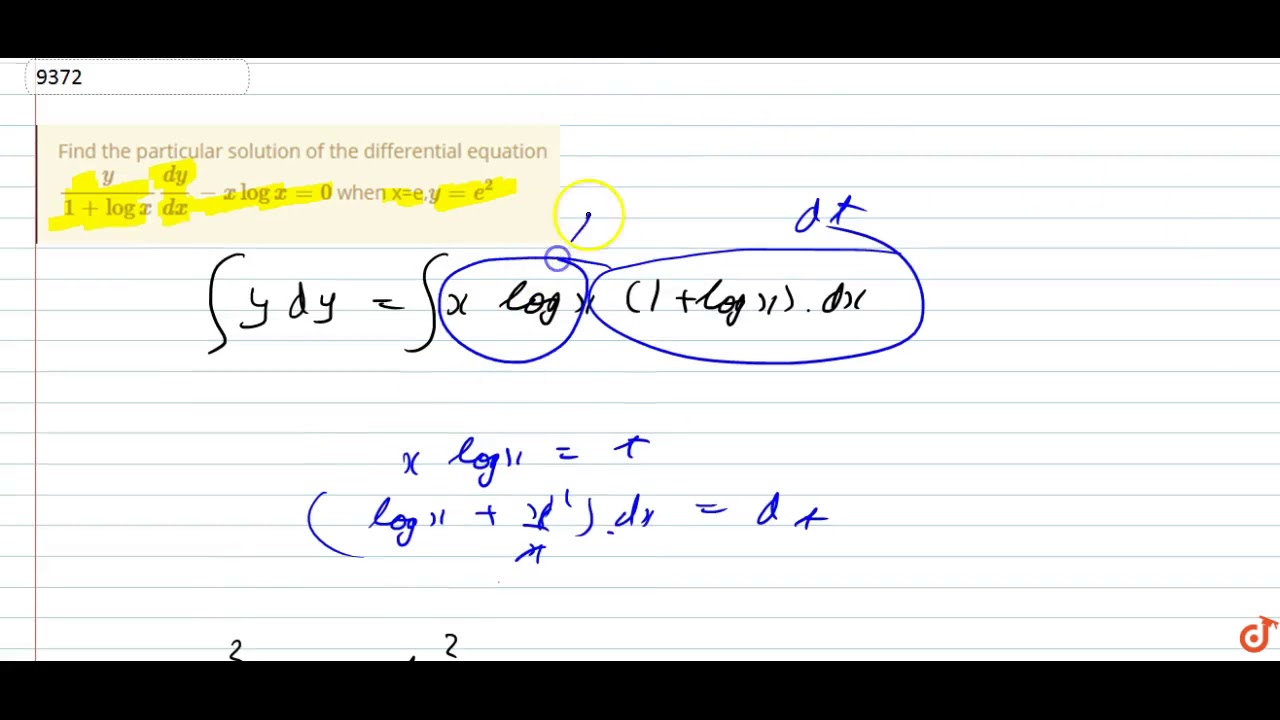 9372
Find the particular solution of the differential equation
y/(1 + log x) dy/dx − x log x = 0 when x=e, y = e²
dt
∫ y dy = ∫ x log x (1 + log x) . dx
x log x = t
( log x + x/x ¹ ) . dx = dt
2 2